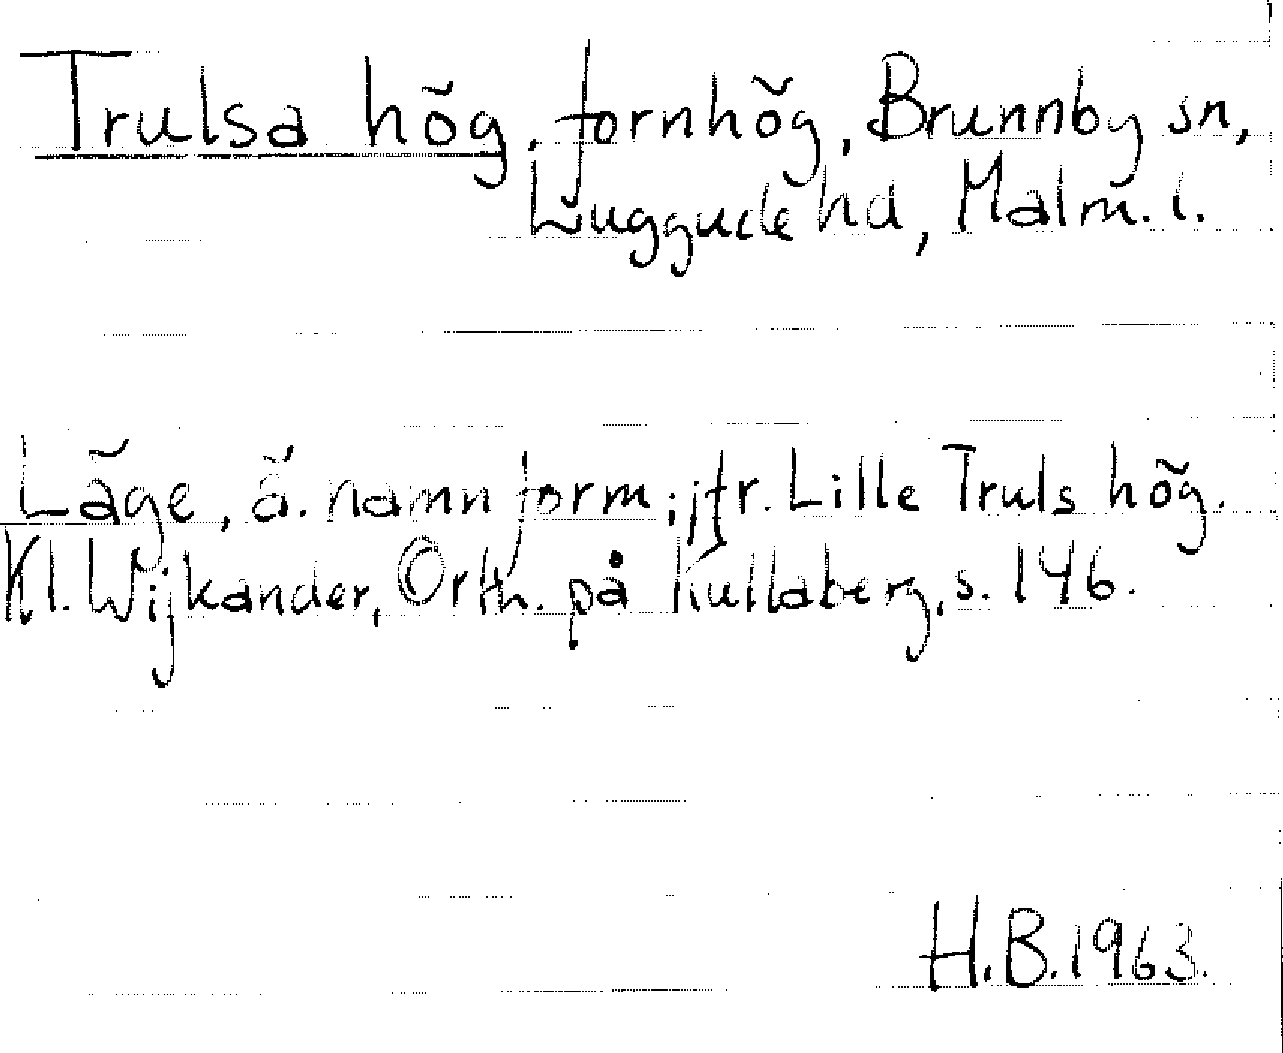 Trulsa hög, fornhög, Brunnby sn,
Luggude hd, Malm. l.
Läge, ä. namnform; jfr. Lille Truls hög.
Kl. Wijkander, Orth. på Kullaberg, s. 146.
H.B. 1963.